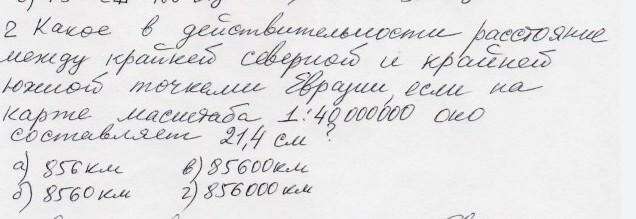 2 Какое в действительности расстояние
между крайней северной и крайней
южной точками Евразии, если на
карте масштаба 1:40 000 000 оно
составляет 21,4 см?
а) 856 км в) 85600 км
б) 8560 км г) 856000 км